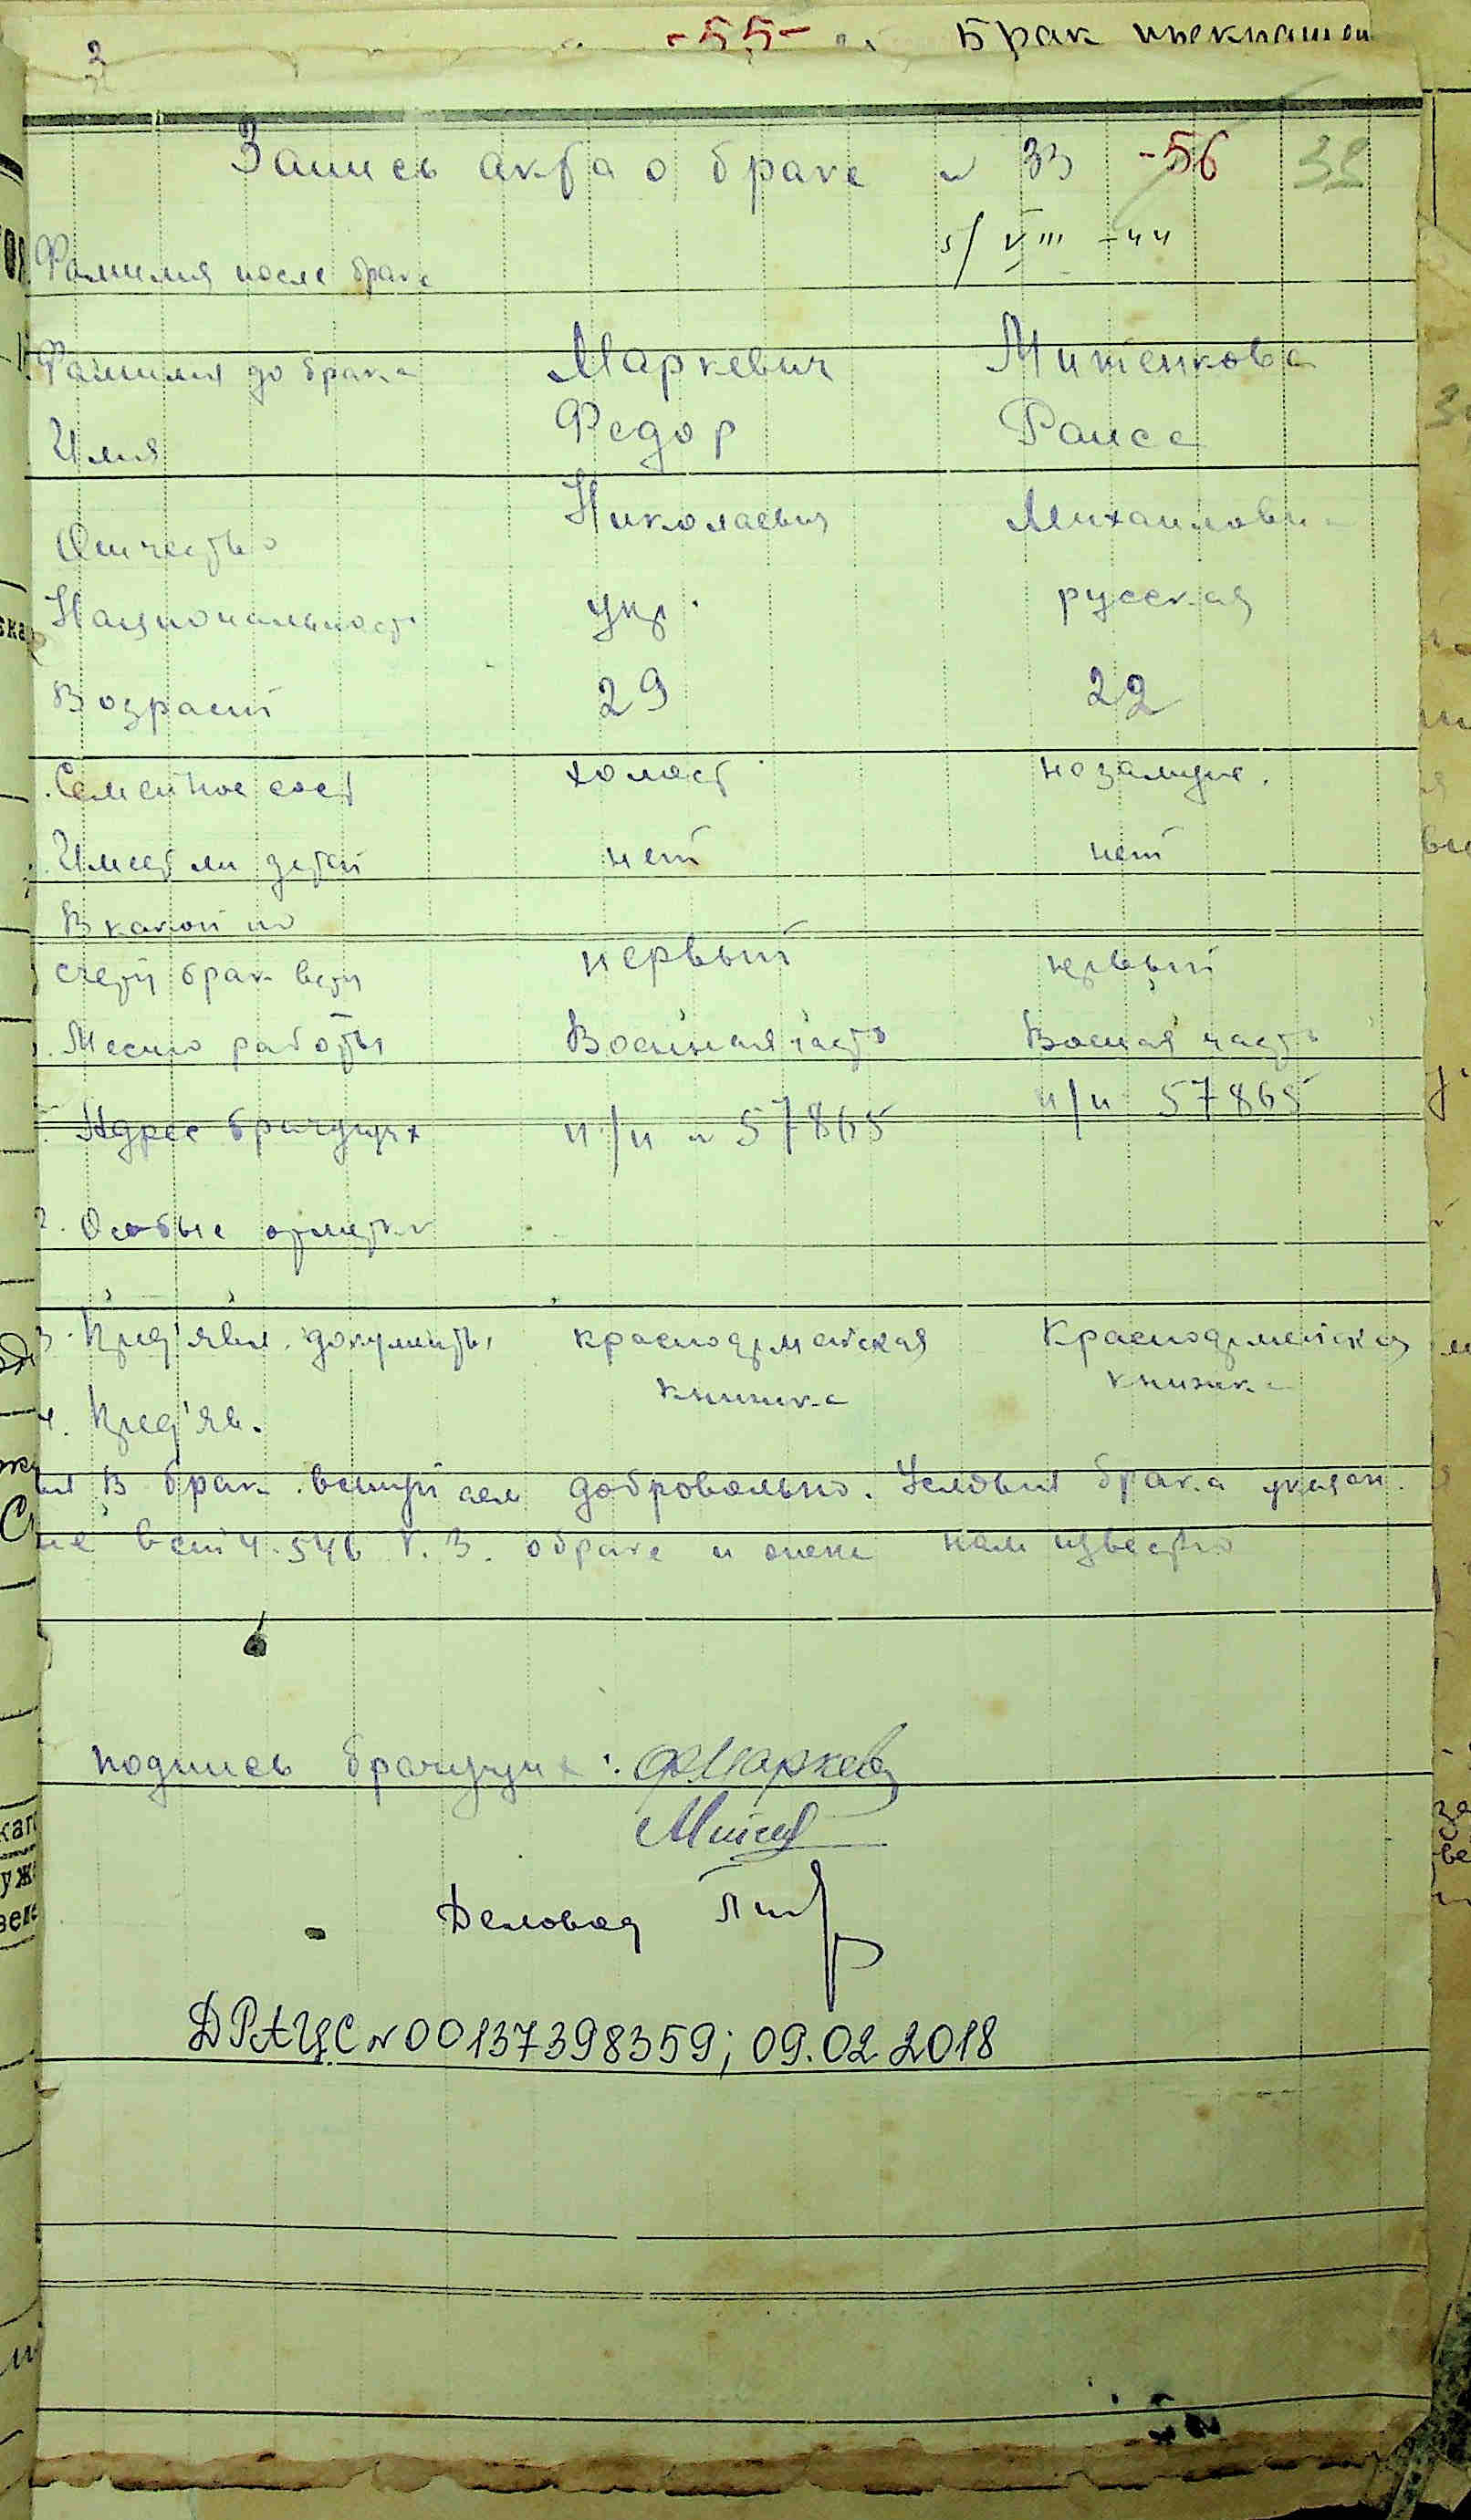 -55-
Брак
Запись акта о браке № 33 -56 39
5/VIII-44
Фамилия после брака
Фамилия до брака Маркевич Митенкова
Имя Федор Раиса
Отчество Николаевич Михайловна
Национальность укр. русская
Возраст 29 22
Семейное сост холост незамуж.
Имеет ли детей нет нет
В какой по
счету брак вступ первый первый
Место работы Военная часть Военая часть
Адрес брачущих п/п № 57865 п/п 57865
2. Особые отметки
3. Пред'явл. документы красноармейская Красноармейская
книжка книжка
4. Пред'яв.
В брак вступаем добровольно. Условия брака указан.
ые в ст 4.5 и 6 К.З. о браке и опеке нам известно
подпись брачущих: ФМаркев
Деловод
ДРАЦС №00137398359; 09.02.2018